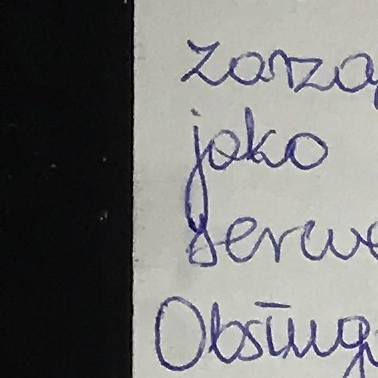 zarzą
jako
serwe
Obsług